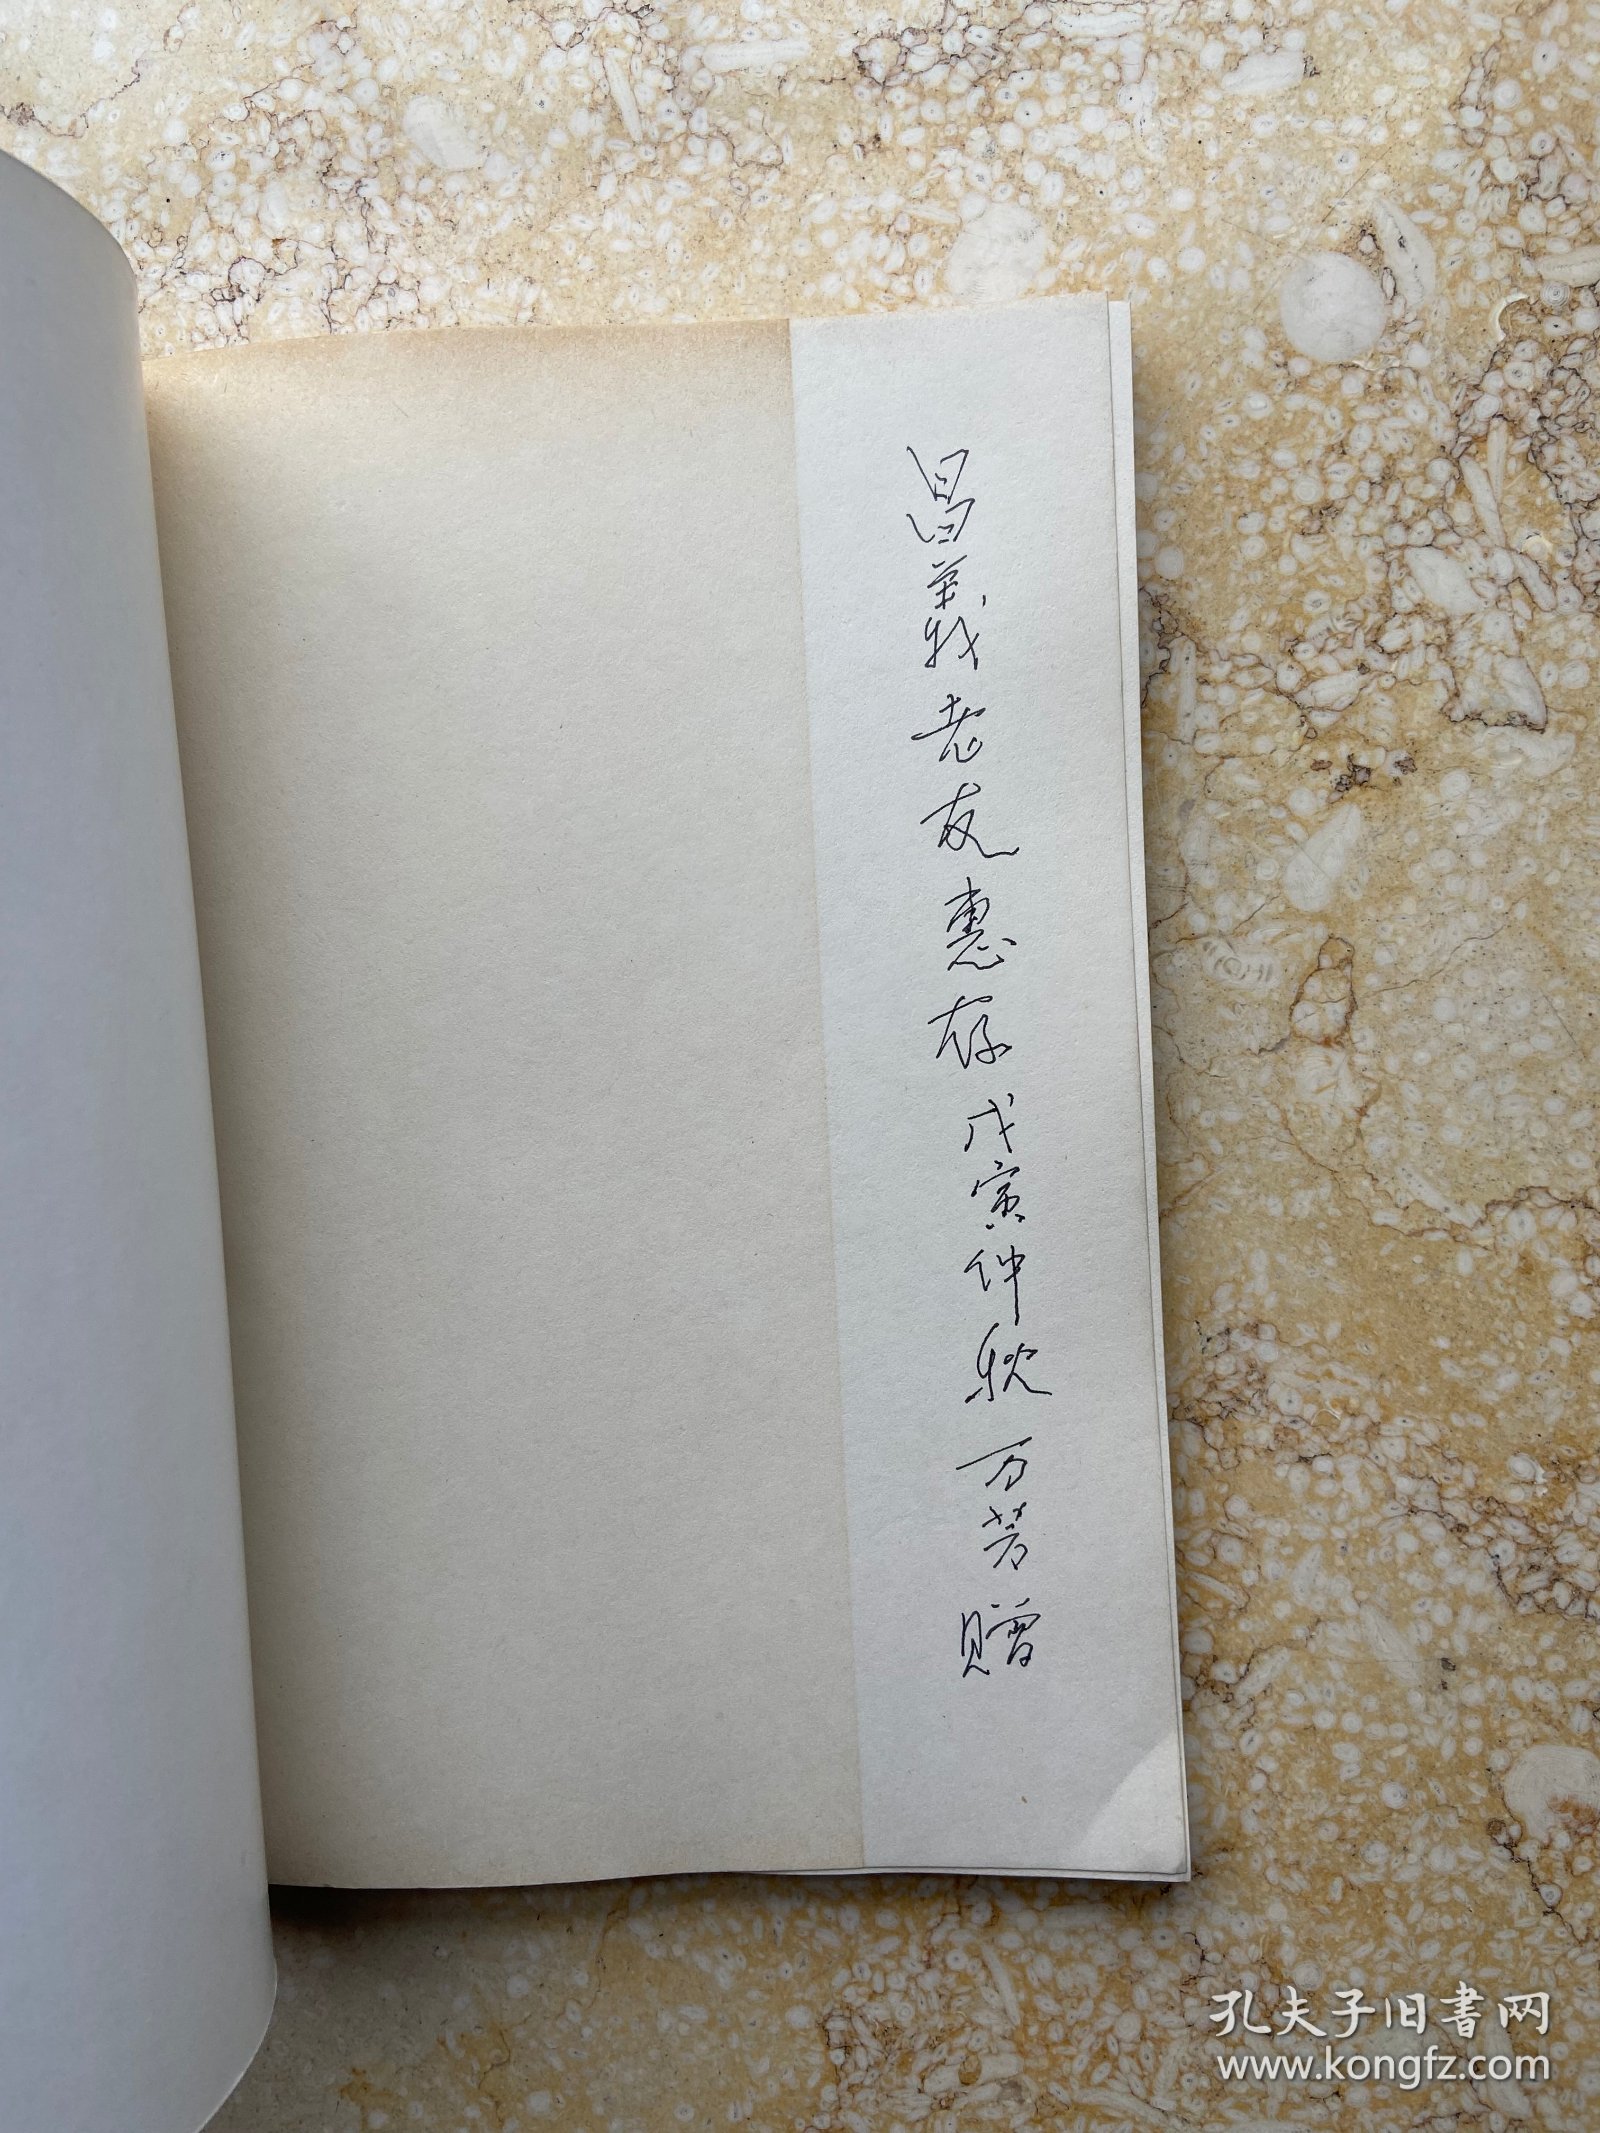 昌義老友惠存戊寅仲秋万芳赠
孔夫子旧书网
www.kongfz.com